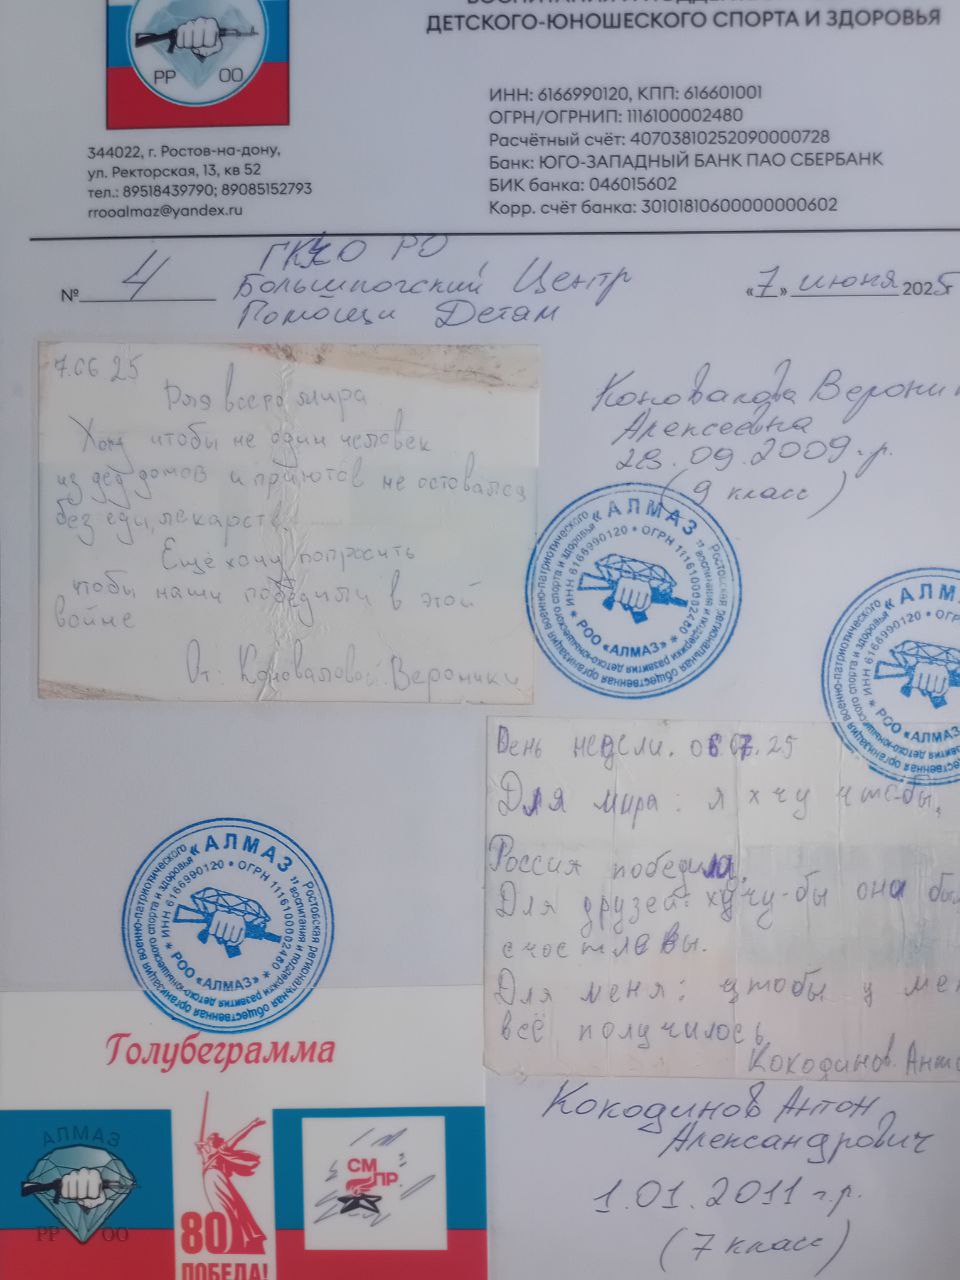 ДЕТСКОГО-ЮНОШЕСКОГО СПОРТА И ЗДОРОВЬЯ
РР ОО
344022, г. Ростов-на-дону,
ул. Ректорская, 13, кв 52
тел.: 89518439790; 89085152793
rrooalmaz@yandex.ru
ИНН: 6166990120, КПП: 616601001
ОГРН/ОГРНИП: 1116100002480
Расчётный счёт: 40703810252090000728
Банк: ЮГО-ЗАПАДНЫЙ БАНК ПАО СБЕРБАНК
БИК банка: 046015602
Корр. счёт банка: 30101810600000000602
№ 4
РО
Большинский Центр
Помощи Детям
«7» июня 2025г
7.06 25
Для всего мира
Хочу чтобы не один человек
из дед домов и приютов не оставался
без еды, лекарств.
Ещё хочу попросить
чтобы наши победили в этой
войне
От: Коноваловой Вероники
Коновалова
Алексеевна
28.09.2009 г.р.
(9 класс)
«АЛМАЗ»
Ростовская региональная общественная организация военно-патриотического воспитания и поддержки развития детско-юношеского спорта и здоровья
* ИНН 6166990120 * ОГРН 1116100002480 *
РОО «АЛМАЗ»
«АЛМАЗ
РОО «АЛМАЗ»
День недели. 06.07.25
Для мира: я хчу чтобы,
Россия победила.
Для друзей: хучу бы они
счастлевы.
Для меня: чтобы у
всё получилось
Кокодинов.
Кокодинов Антон
Александрович
1.01.2011 г.р.
(7 класс)
«АЛМАЗ»
Ростовская региональная общественная организация военно-патриотического воспитания и поддержки развития детско-юношеского спорта и здоровья
* ИНН 6166990120 * ОГРН 1116100002480 *
РОО «АЛМАЗ»
Голубеграмма
АЛМАЗ
РР ОО
80
ПОБЕДА!
СМ
ПР